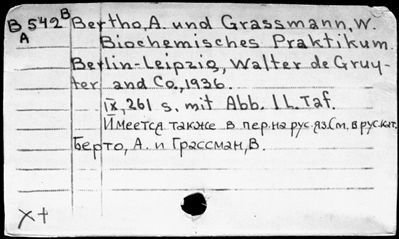 B 542 B Bertho, A. und Grassmann, W.
A Biochemisches Praktikum.
Berlin-Leipzig, Walter de Gruy-
ter and Co., 1936.
IX, 261 s. mit Abb. 1 L. Taf.
Имеется также в пер. на рус. яз. См. в рус. кат.
Берто, А. и Грассман, В.
X†